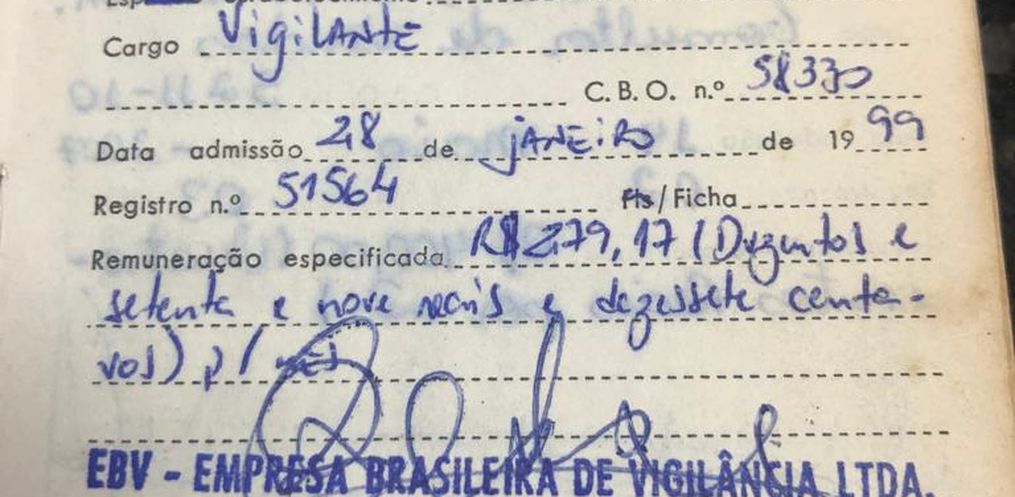 Cargo Vigilante
C. B. O. n.º 58330
Data admissão 28 de janeiro de 19 99
Registro n.º 51564 Fls/Ficha
Remuneração especificada R$ 279,17 (Duzentos e
setenta e nove reais e dezessete centa-
vos) p/ mês
EBV - EMPRESA BRASILEIRA DE VIGILÂNCIA LTDA.